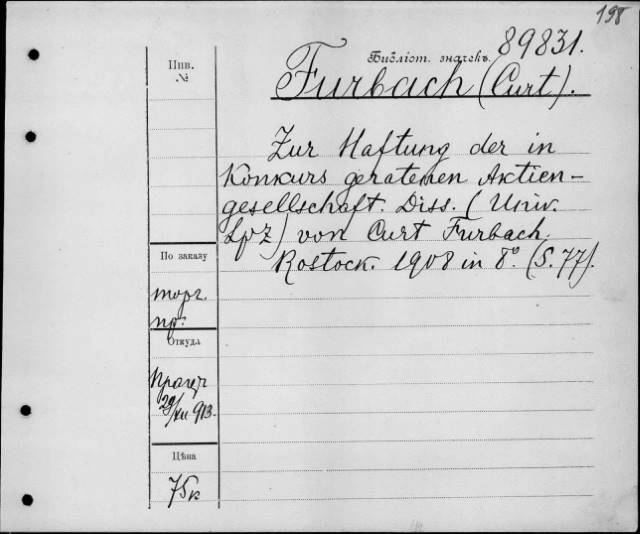 198
89831.
Библіот. значекъ.
Инв.
№
Furbach (Curt).
Zur Haftung der in
Konkurs geratenen Aktien-
gesellschaft. Diss. (Univ.
Lpz) von Curt Furbach.
Rostock. 1908 in 8°. (S. 77).
По заказу
торг.
пр.
Откуда
29/XII 913.
Цѣна
75к